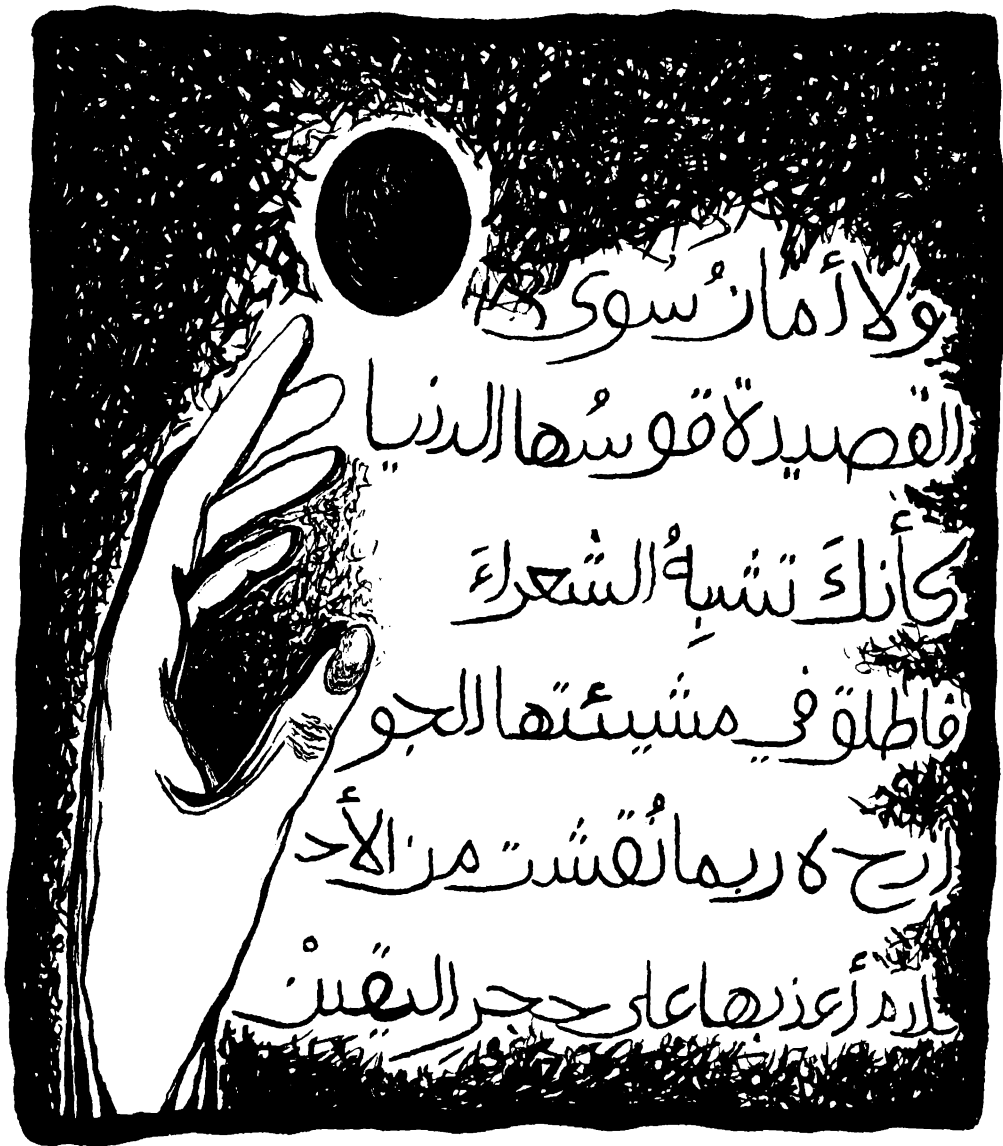 ولا أمانُ سُوى
القصيدة قوسُها الدنيا
كأنكَ تشبِهُ الشعراءَ
فاطلق في مشيئتها الجو
ارح ه ربما نُقشت من الأحـ
ـلام أعذبها على حجرِ اليقينْ